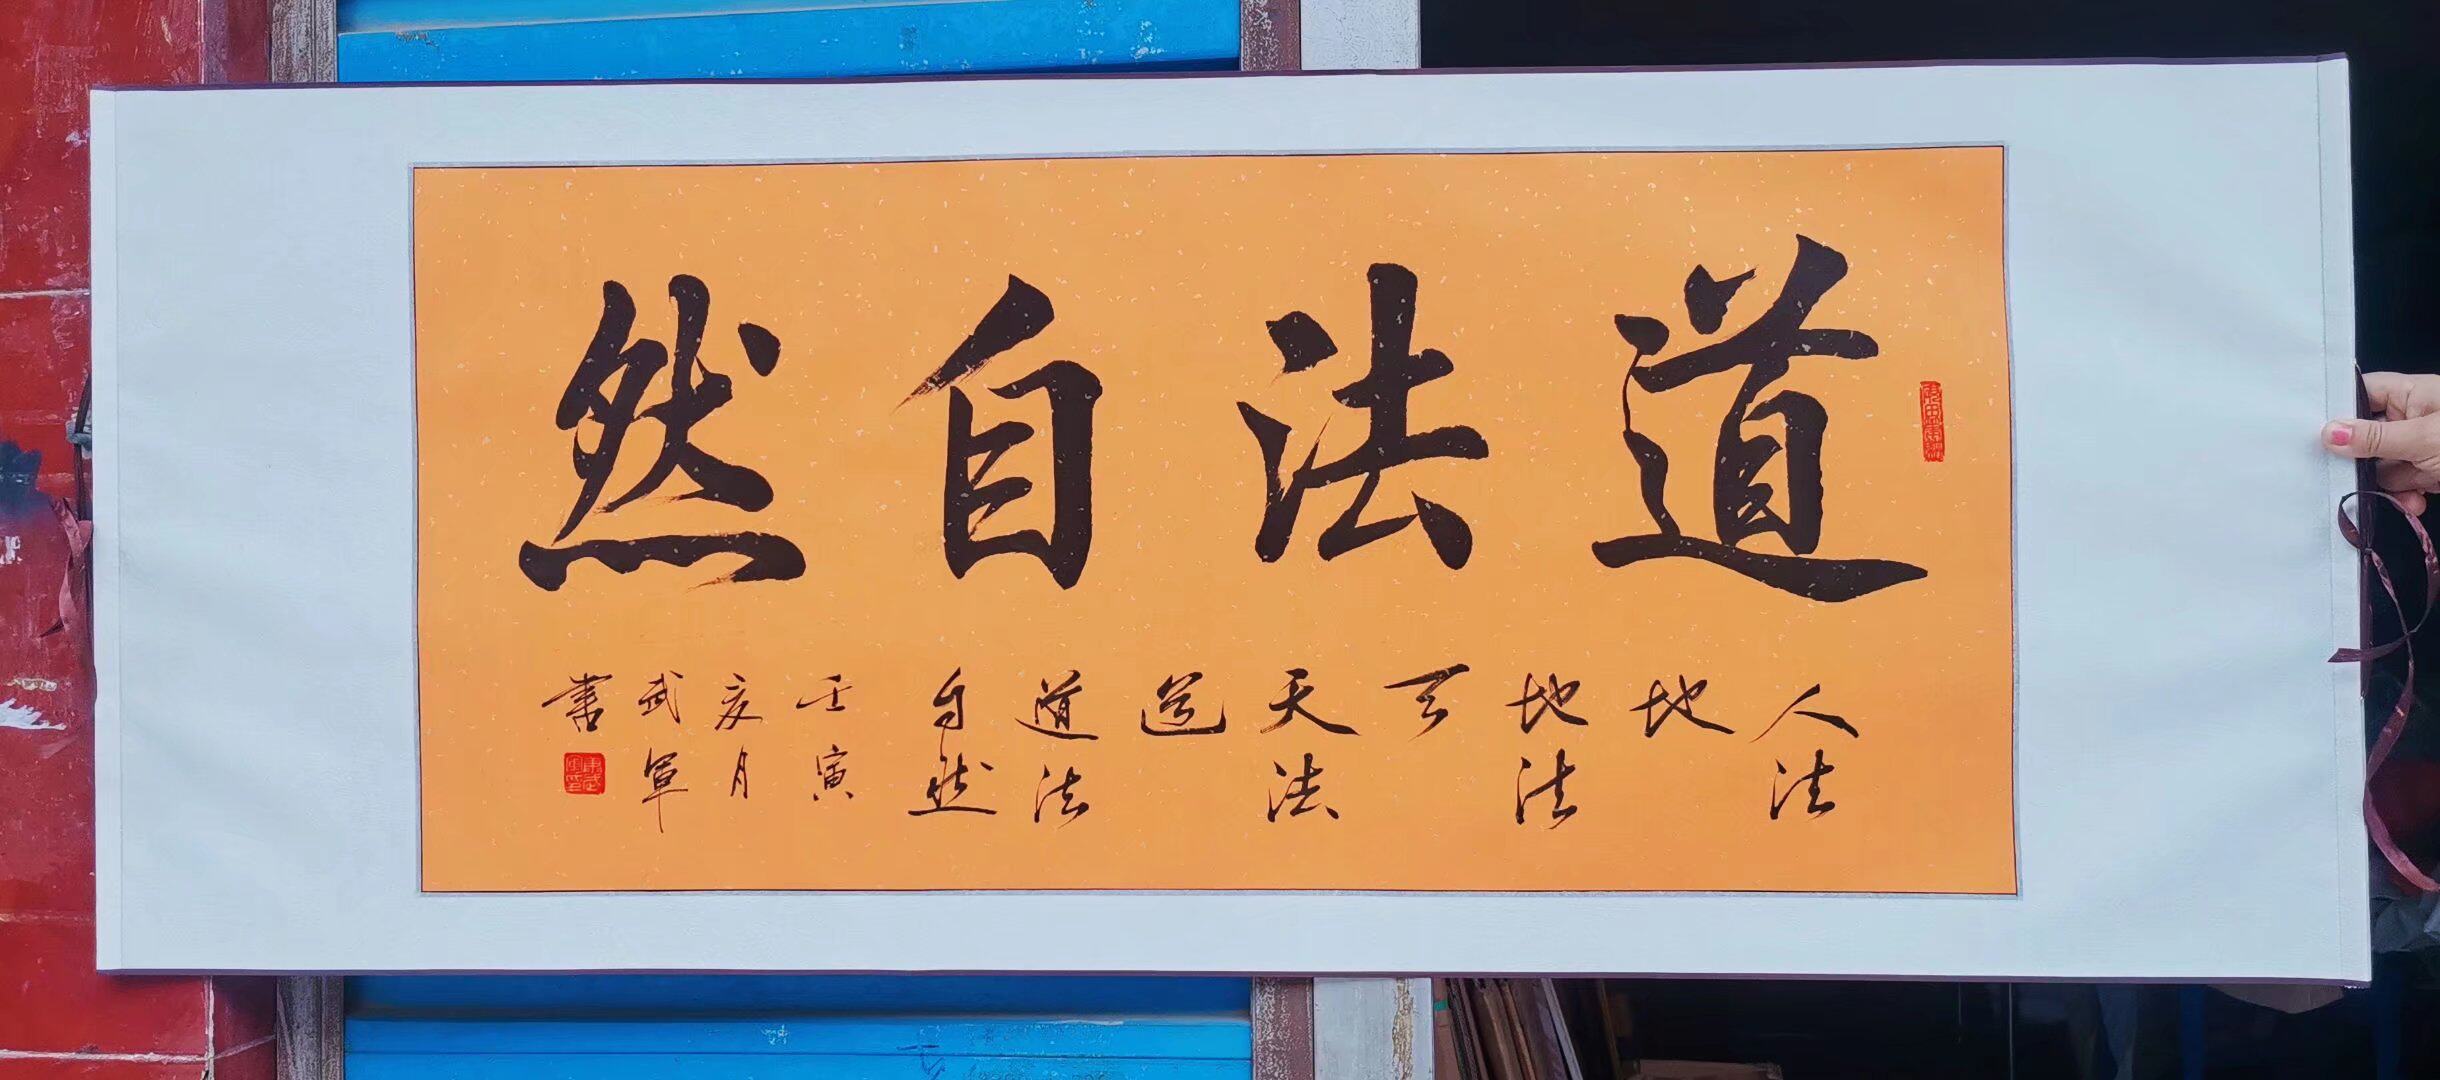 道法自然
人法
地
地法
天
天法
道
道法
自然
壬寅
亥月
武军
书